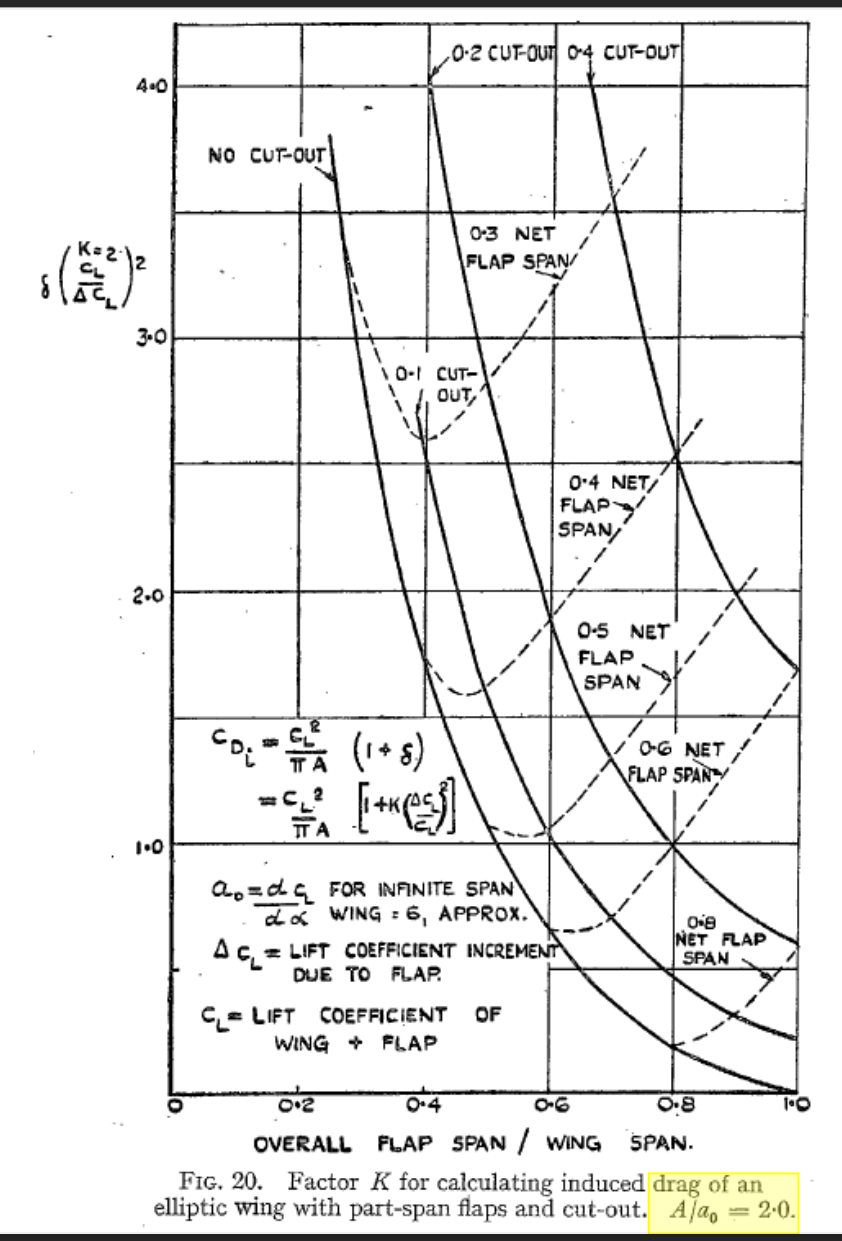 0·2 CUT-OUT 0·4 CUT-OUT
4·0
NO CUT-OUT
0·3 NET
FLAP SPAN
K=2
δ (C_L / ΔC_L)²
3·0
0·1 CUT-
OUT
0·4 NET
FLAP
SPAN
2·0
0·5 NET
FLAP
SPAN
C_Di = C_L² / πA (1+δ)
0·6 NET
FLAP SPAN
= C_L² / πA [1+K(ΔC_L / C_L)²]
1·0
a₀ = d C_L / dα FOR INFINITE SPAN
WING = 6, APPROX.
0·8
NET FLAP
SPAN
Δ C_L = LIFT COEFFICIENT INCREMENT
DUE TO FLAP.
C_L = LIFT COEFFICIENT OF
WING + FLAP
0 0·2 0·4 0·6 0·8 1·0
OVERALL FLAP SPAN / WING SPAN.
FIG. 20. Factor K for calculating induced drag of an
elliptic wing with part-span flaps and cut-out. A/a₀ = 2·0.